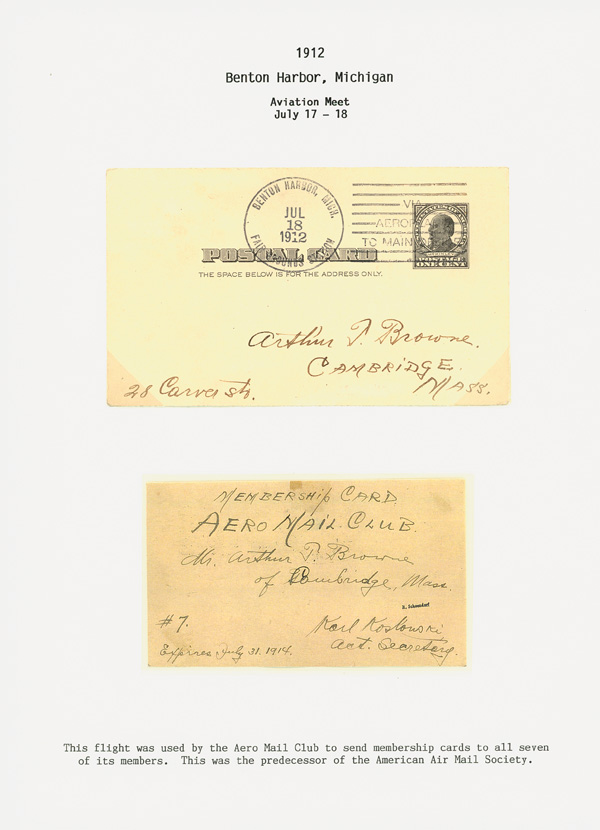 1912
Benton Harbor, Michigan
Aviation Meet
July 17 - 18
BENTON HARBOR, MICH.
JUL
18
1912
VIA
TO MAIN
POSTAL CARD
THE SPACE BELOW IS FOR THE ADDRESS ONLY.
POSTAGE
ONE CENT
Arthur P. Browne.
CAMBRIDGE.
28 Carver st.
MASS.
MEMBERSHIP CARD
AERO MAIL CLUB.
Mr. Arthur P. Browne
of Cambridge, Mass.
#7.
Karl Koslowski
Expires July 31. 1914.
Act. Secretary.
This flight was used by the Aero Mail Club to send membership cards to all seven
of its members. This was the predecessor of the American Air Mail Society.